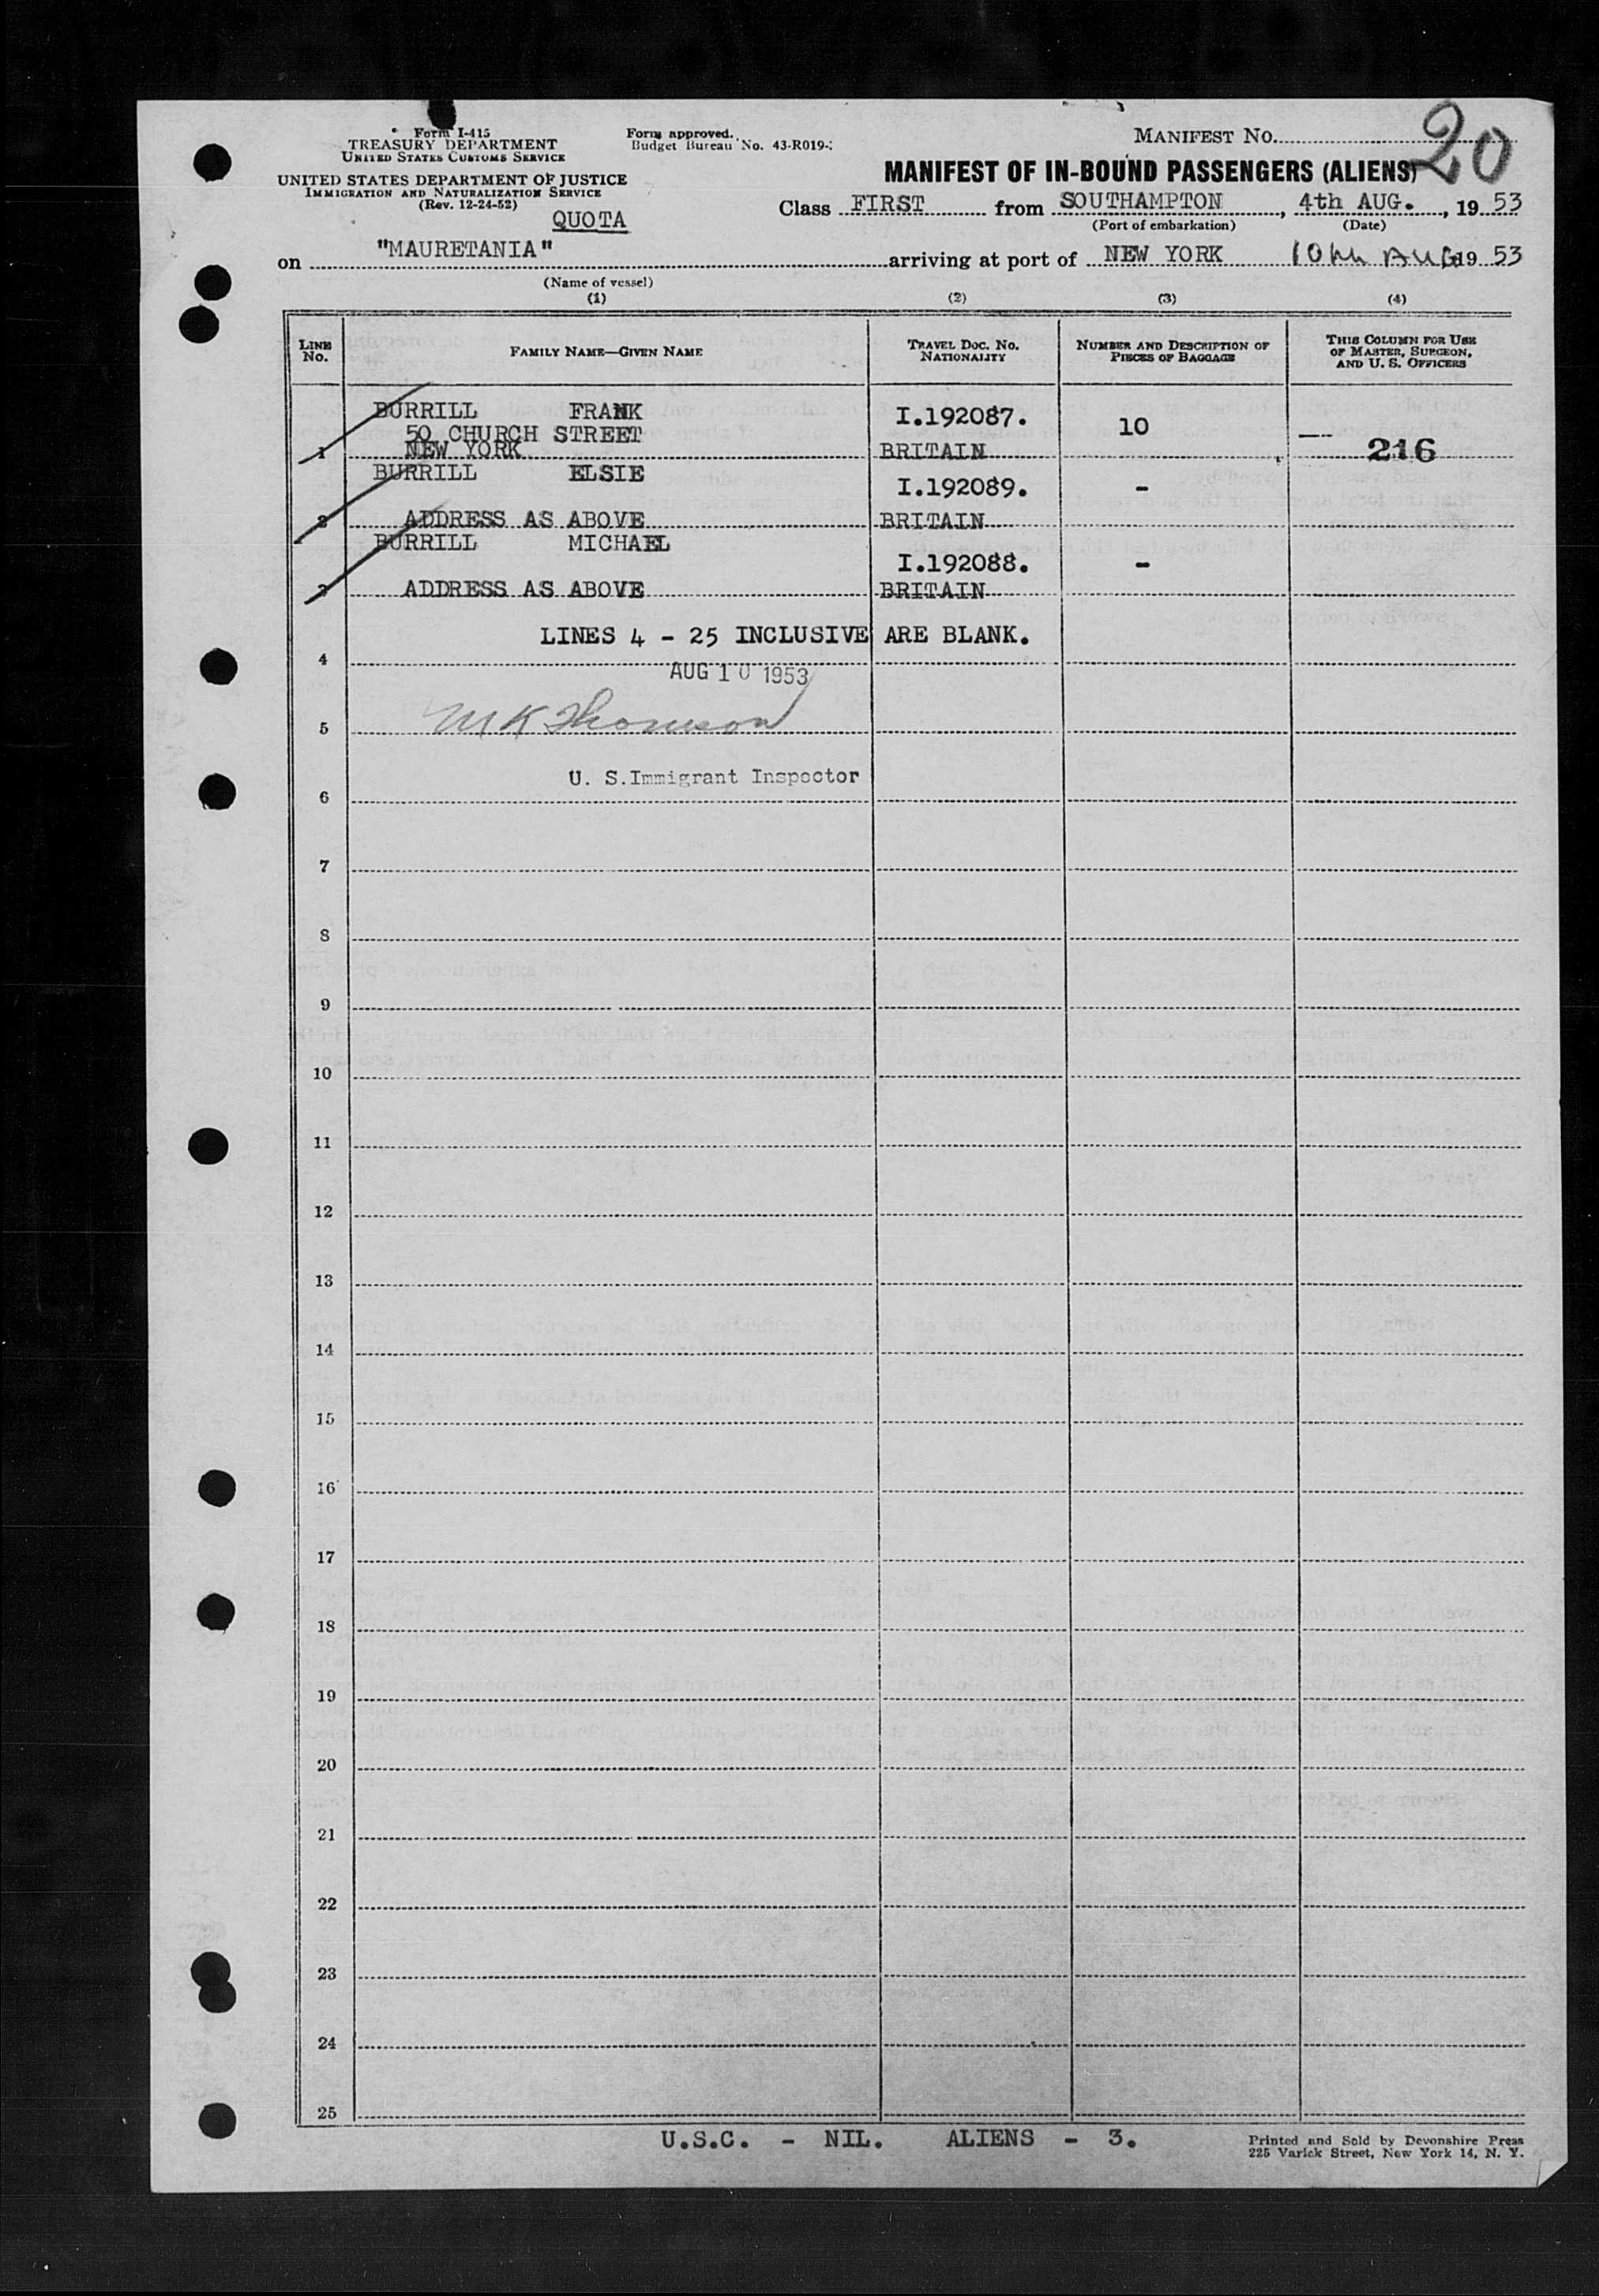 Form I-415
TREASURY DEPARTMENT
UNITED STATES CUSTOMS SERVICE
UNITED STATES DEPARTMENT OF JUSTICE
IMMIGRATION AND NATURALIZATION SERVICE
(Rev. 12-24-52)
Form approved.
Budget Bureau No. 43-R019-
MANIFEST NO. 20
MANIFEST OF IN-BOUND PASSENGERS (ALIENS)
QUOTA
Class FIRST from SOUTHAMPTON, 4th AUG., 19 53
(Port of embarkation) (Date)
on "MAURETANIA" arriving at port of NEW YORK 10th AUG 19 53
(Name of vessel)
(1) (2) (3) (4)
LINE NO.
FAMILY NAME—GIVEN NAME
TRAVEL DOC. NO. NATIONALITY
NUMBER AND DESCRIPTION OF PIECES OF BAGGAGE
THIS COLUMN FOR USE OF MASTER, SURGEON, AND U. S. OFFICERS
BURRILL FRANK I.192087. 10
50 CHURCH STREET
1 NEW YORK BRITAIN — 216
BURRILL ELSIE I.192089. -
2 ADDRESS AS ABOVE BRITAIN
BURRILL MICHAEL I.192088. -
3 ADDRESS AS ABOVE BRITAIN
LINES 4 - 25 INCLUSIVE ARE BLANK.
4
AUG 10 1953
5 M K Thomson
U. S. Immigrant Inspector
6
7
8
9
10
11
12
13
14
15
16
17
18
19
20
21
22
23
24
25
U.S.C. - NIL. ALIENS - 3.
Printed and Sold by Devonshire Press
225 Varick Street, New York 14, N. Y.